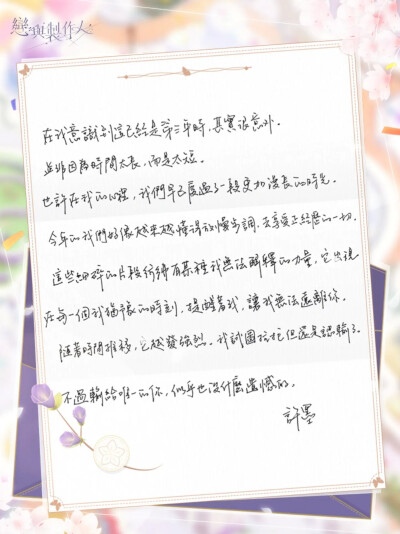 戀與製作人
在我意識到這已經是第三年時,其實很意外。
並非因為時間太長,而是太短。
也許在我的心裡,我們早已度過了一段更加漫長的時光。
今年的我們好像越來越懂得放慢步調,去享受正經歷的一切。
這些細碎的片段彷彿有某種我無法解釋的力量,它出現
在每一個我猶豫的時刻,提醒著我,讓我無法遠離你。
隨著時間推移,它越發強烈。我試圖抵抗但還是認輸了。
不過輸給唯一的你,似乎也沒什麼遺憾的。
許墨